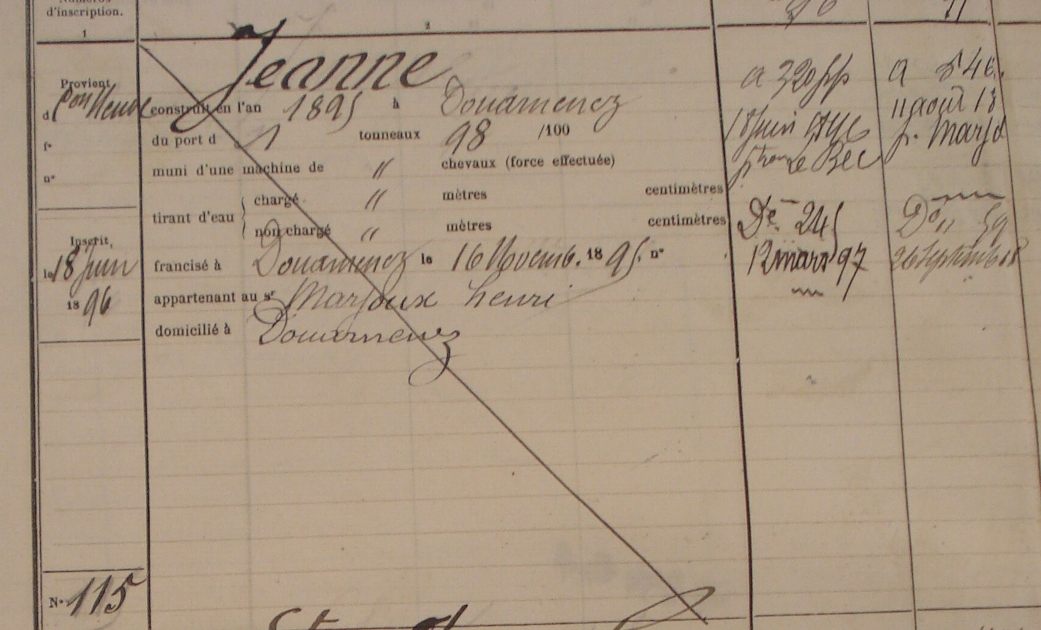 Numéros
d'inscription.
1
2
Jeanne
Provient
d Con Neuve
construit en l'an 1895 à Douarnenez
du port d 1 tonneaux 98 /100
f°
muni d'une machine de " chevaux (force effectuée)
n°
tirant d'eau { chargé " mètres centimètres
non chargé " mètres centimètres
Inscrit,
le 18 Juin
1896
francisé à Douarnenez le 16 Novemb. 1895. n°
appartenant au sr Marjoux henri
domicilié à Douarnenez
a 320
18 Juin
Le Bec
De 245
12 mars 97
a 546.
11 août 18
p. Marjo
Do 59
26 Septembre 18
N° 115